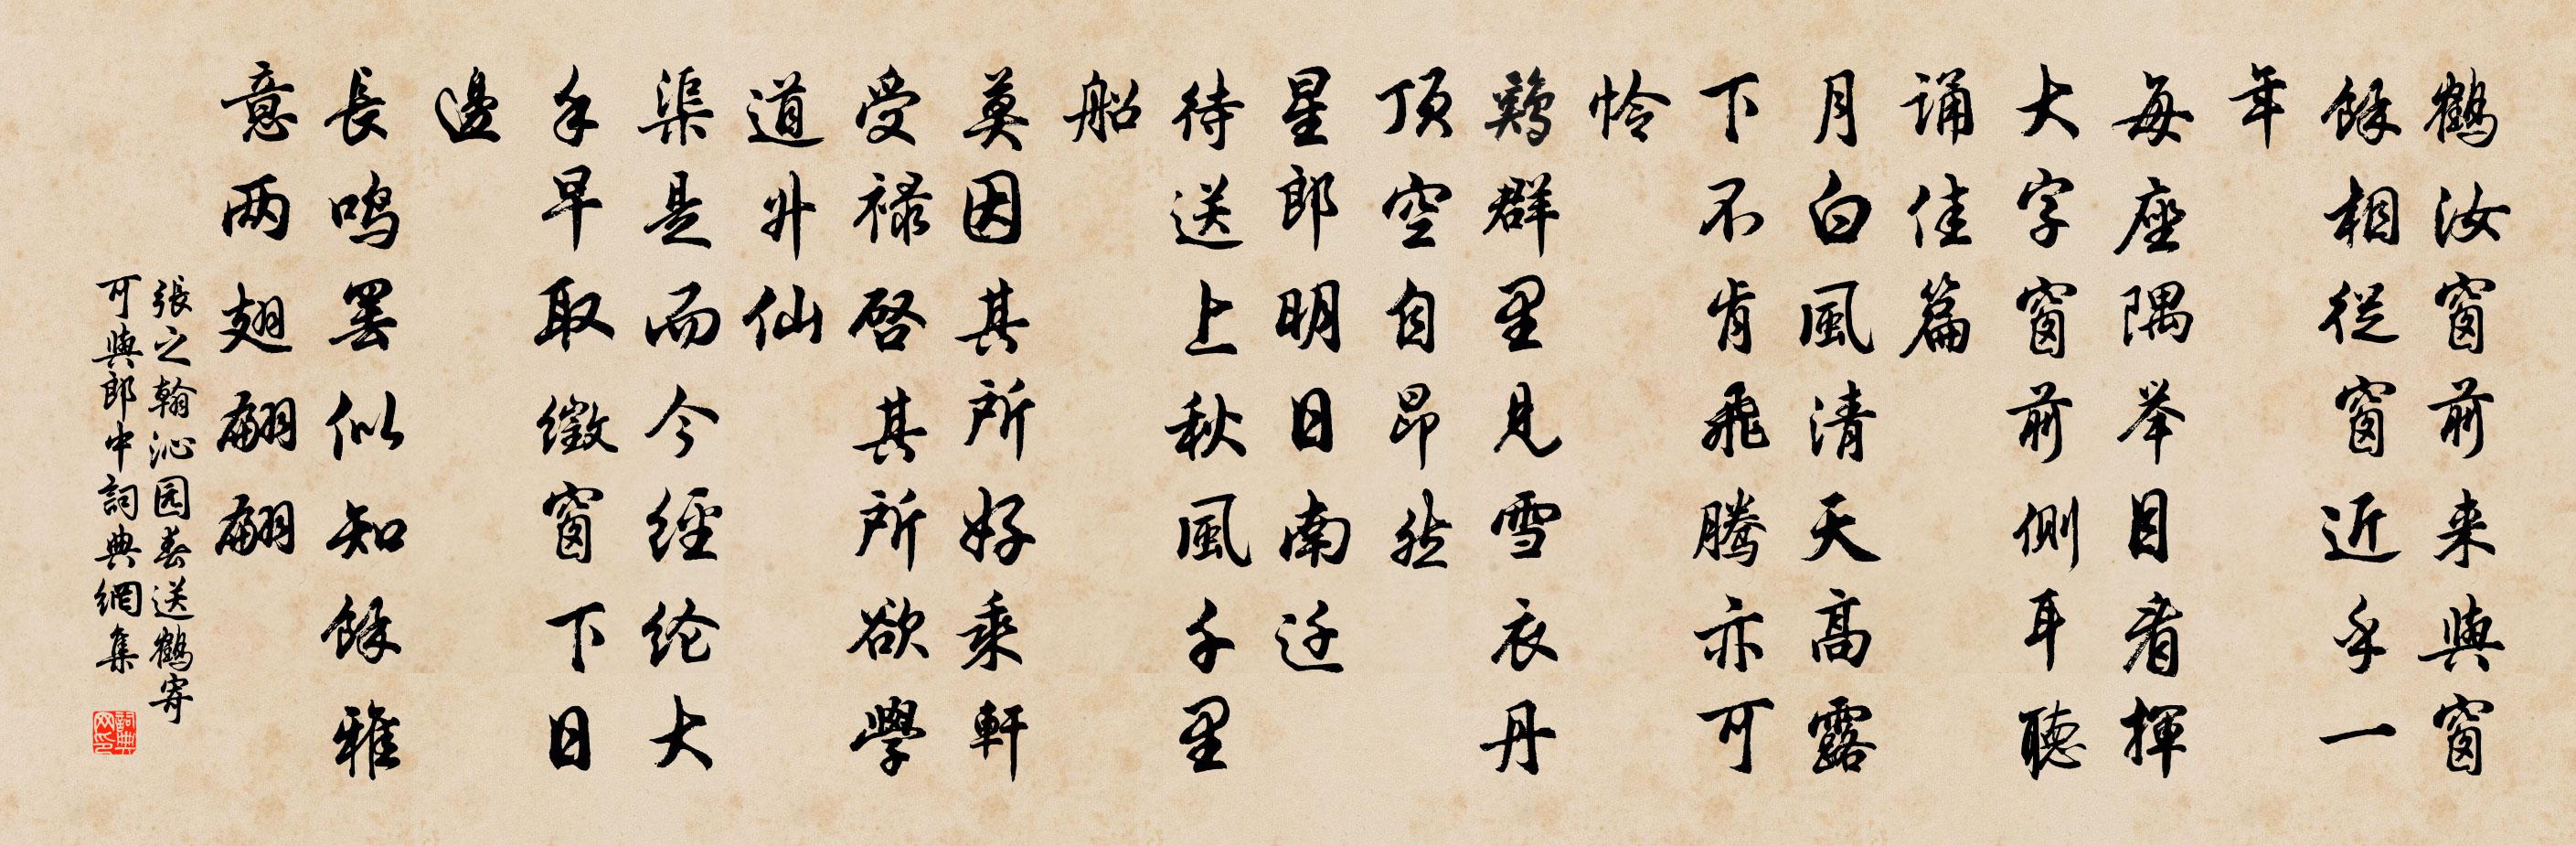 鶴汝窗前来與窗
餘相從窗近乎一
年
每座隅举目看揮
大字窗前側耳聽
诵佳篇
月白風清天高露
下不肯飛騰亦可
怜
鷄群里見雪衣丹
顶空自昂然
星郎明日南迁
待送上秋風千里
船
莫因其所好乘軒
受禄啓其所欲學
道升仙
渠是而今經纶大
手早取徵窗下日
邊
長鸣罢似知餘雅
意两翅翩翩
張之翰沁园春送鶴寄
可與郎中詞典網集
詞典网印